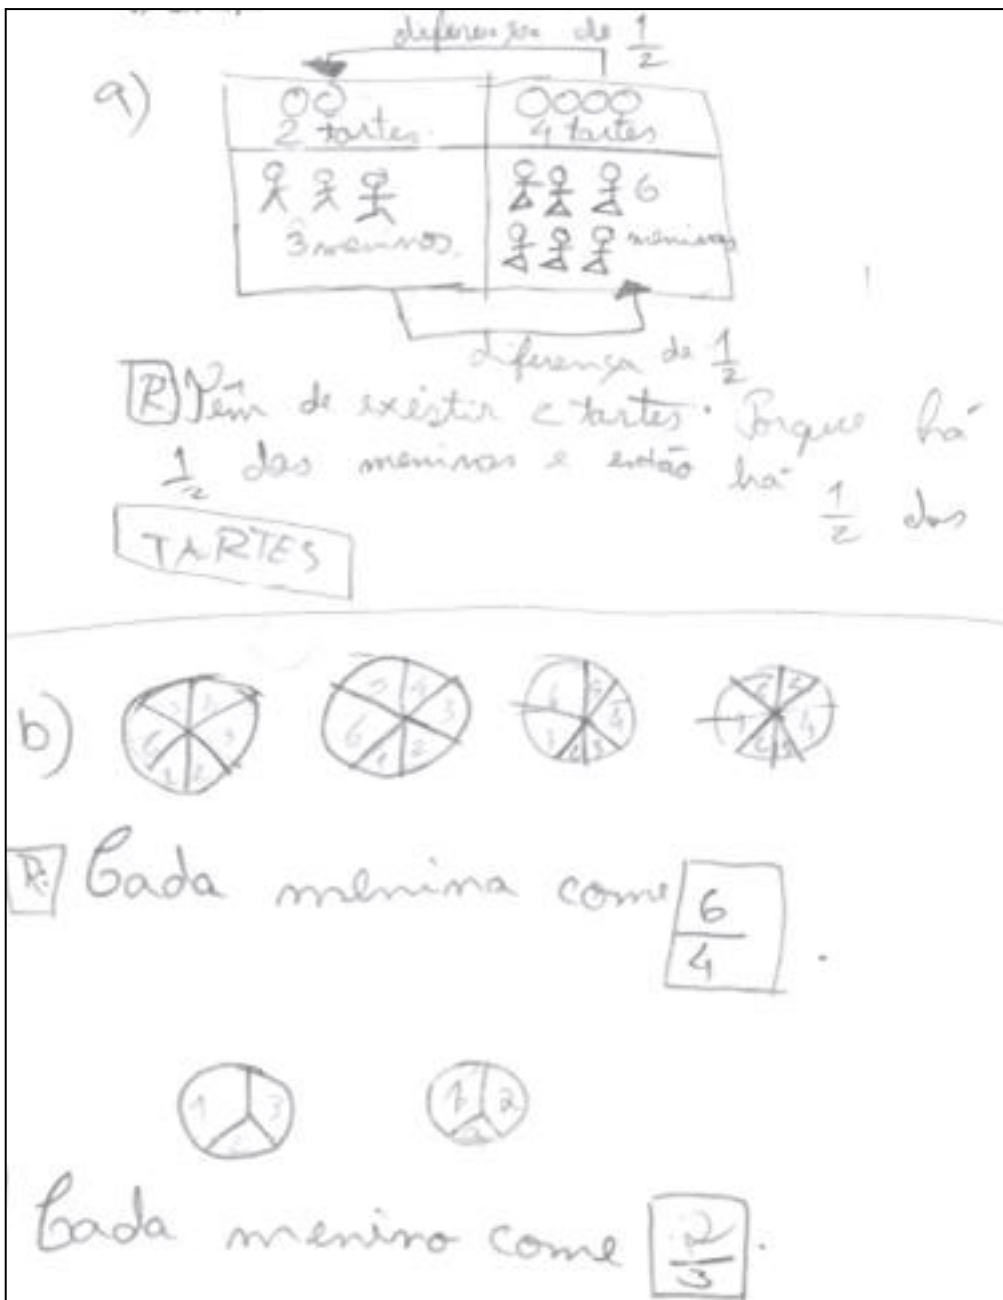 diferença de 1/2
a)
2 tartes. 4 tartes
6
3 meninos. meninas
diferença de 1/2
R) Têm de existir tartes. Porque há
1/2 das meninas e então há 1/2 das
TARTES
b)
5 4 6 3 1 2
5 4 6 3 1 2
R: Cada menina come 6/4 .
1 3 2
1 2
Cada menino come 2/3 .